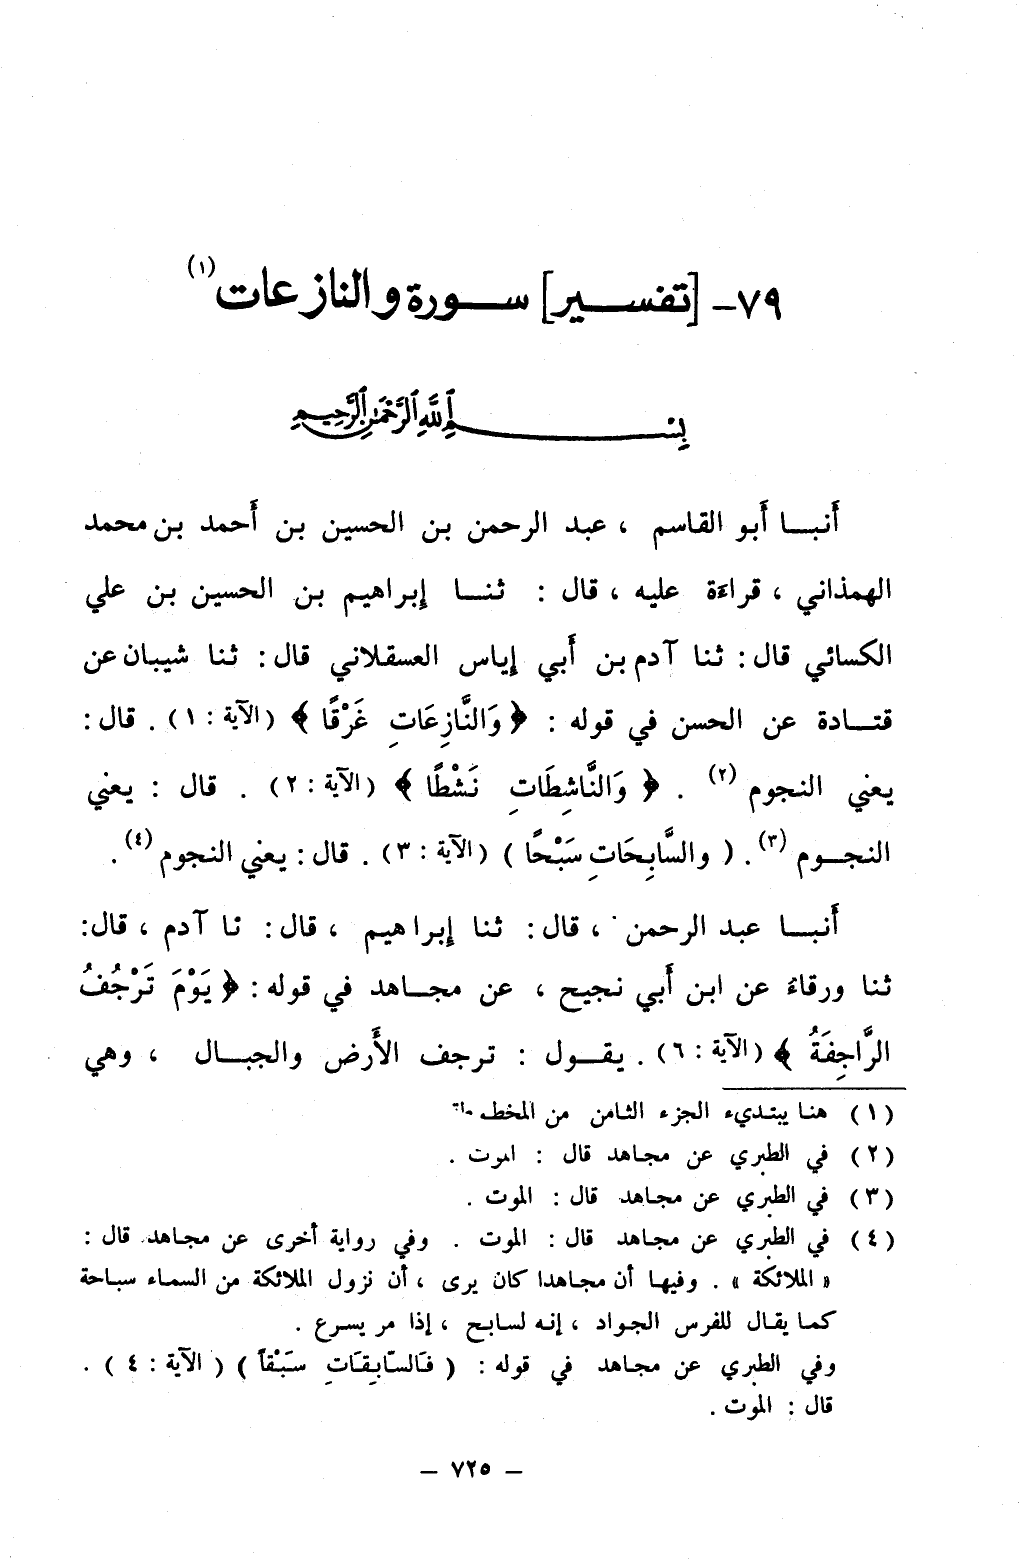 ٧٩- [تفسير] سورة والنازعات (١)
بِسْمِ اللَّهِ الرَّحْمَنِ الرَّحِيمِ
أَنبا أَبو القاسم ، عبد الرحمن بن الحسين بن أَحمد بن محمد
الهمذاني ، قراءَة عليه ، قال : ثنا إبراهيم بن الحسين بن علي
الكسائي قال : ثنا آدم بن أَبي إياس العسقلاني قال : ثنا شيبان عن
قتادة عن الحسن في قوله : ﴿ وَالنَّازِعَاتِ غَرْقًا ﴾ (الآية : ١) . قال :
يعني النجوم (٢) . ﴿ وَالنَّاشِطَاتِ نَشْطًا ﴾ (الآية : ٢) . قال : يعني
النجوم (٣) . ( والسَّابِحَاتِ سَبْحًا ) (الآية : ٣) . قال : يعني النجوم (٤) .
أَنبا عبد الرحمن ، قال : ثنا إبراهيم ، قال : نا آدم ، قال :
ثنا ورقاءُ عن ابن أَبي نجيح ، عن مجاهد في قوله : ﴿ يَوْمَ تَرْجُفُ
الرَّاجِفَةُ ﴾ (الآية : ٦) . يقول : ترجف الأَرض والجبال ، وهي
(١) هنا يبتديء الجزء الثامن من
(٢) في الطبري عن مجاهد قال : الموت .
(٣) في الطبري عن مجاهد قال : الموت .
(٤) في الطبري عن مجاهد قال : الموت . وفي رواية أخرى عن مجاهد قال :
« الملائكة » . وفيها أن مجاهدا كان يرى ، أن نزول الملائكة من السماء سباحة
كما يقال للفرس الجواد ، إنه لسابح ، إذا مر يسرع .
وفي الطبري عن مجاهد في قوله : ( فَالسَّابِقَاتِ سَبْقاً ) ( الآية : ٤ ) .
قال : الموت .
– ٧٢٥ –